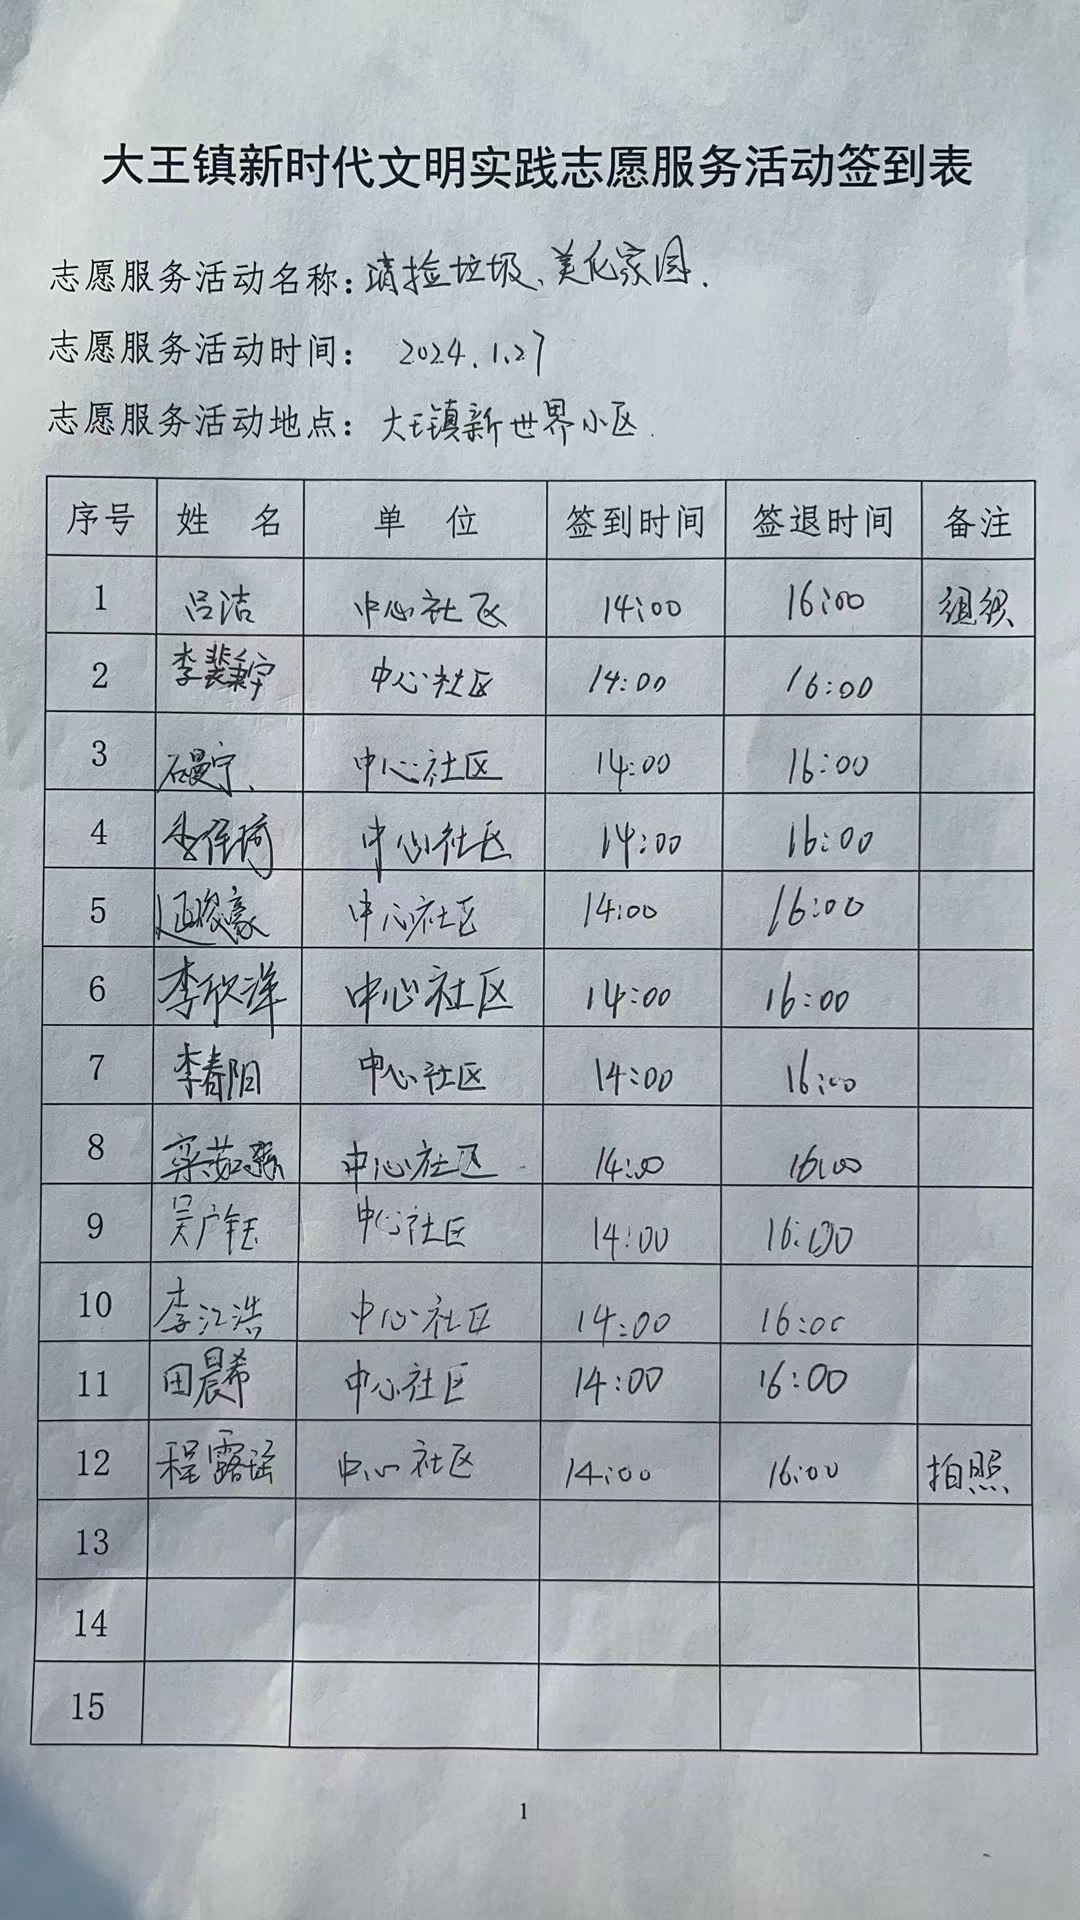 大王镇新时代文明实践志愿服务活动签到表
志愿服务活动名称：清捡垃圾、美化家园.
志愿服务活动时间： 2024.1.27
志愿服务活动地点：大王镇新世界小区.
序号 姓 名 单 位 签到时间 签退时间 备注
1 吕洁 中心社区 14:00 16:00 组织
2 李裴秉宇 中心社区 14:00 16:00
3 石曼宁 中心社区 14:00 16:00
4 李佳琦 中心社区 14:00 16:00
5 延俊豪 中心社区 14:00 16:00
6 李欣洋 中心社区 14:00 16:00
7 李春阳 中心社区 14:00 16:00
8 中心社区 14:00 16:00
9 吴广钰 中心社区 14:00 16:00
10 李江浩 中心社区 14:00 16:00
11 田晨希 中心社区 14:00 16:00
12 程露瑶 中心社区 14:00 16:00 拍照
13
14
15
1